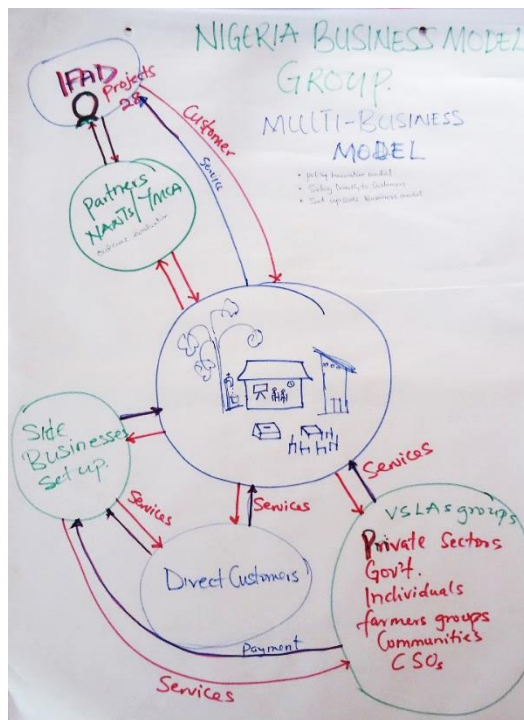 NIGERIA BUSINESS MODEL
GROUP.
MULTI-BUSINESS
MODEL
IFAD
Projects
28
Customer
Service
Partners
NANTS/YMCA
Side
Businesses
Set up.
Services
Services
Direct Customers
Services
VSLAs groups
Private Sectors
Gov't.
Individuals
farmers groups
Communities
CSOs
Payment
Services